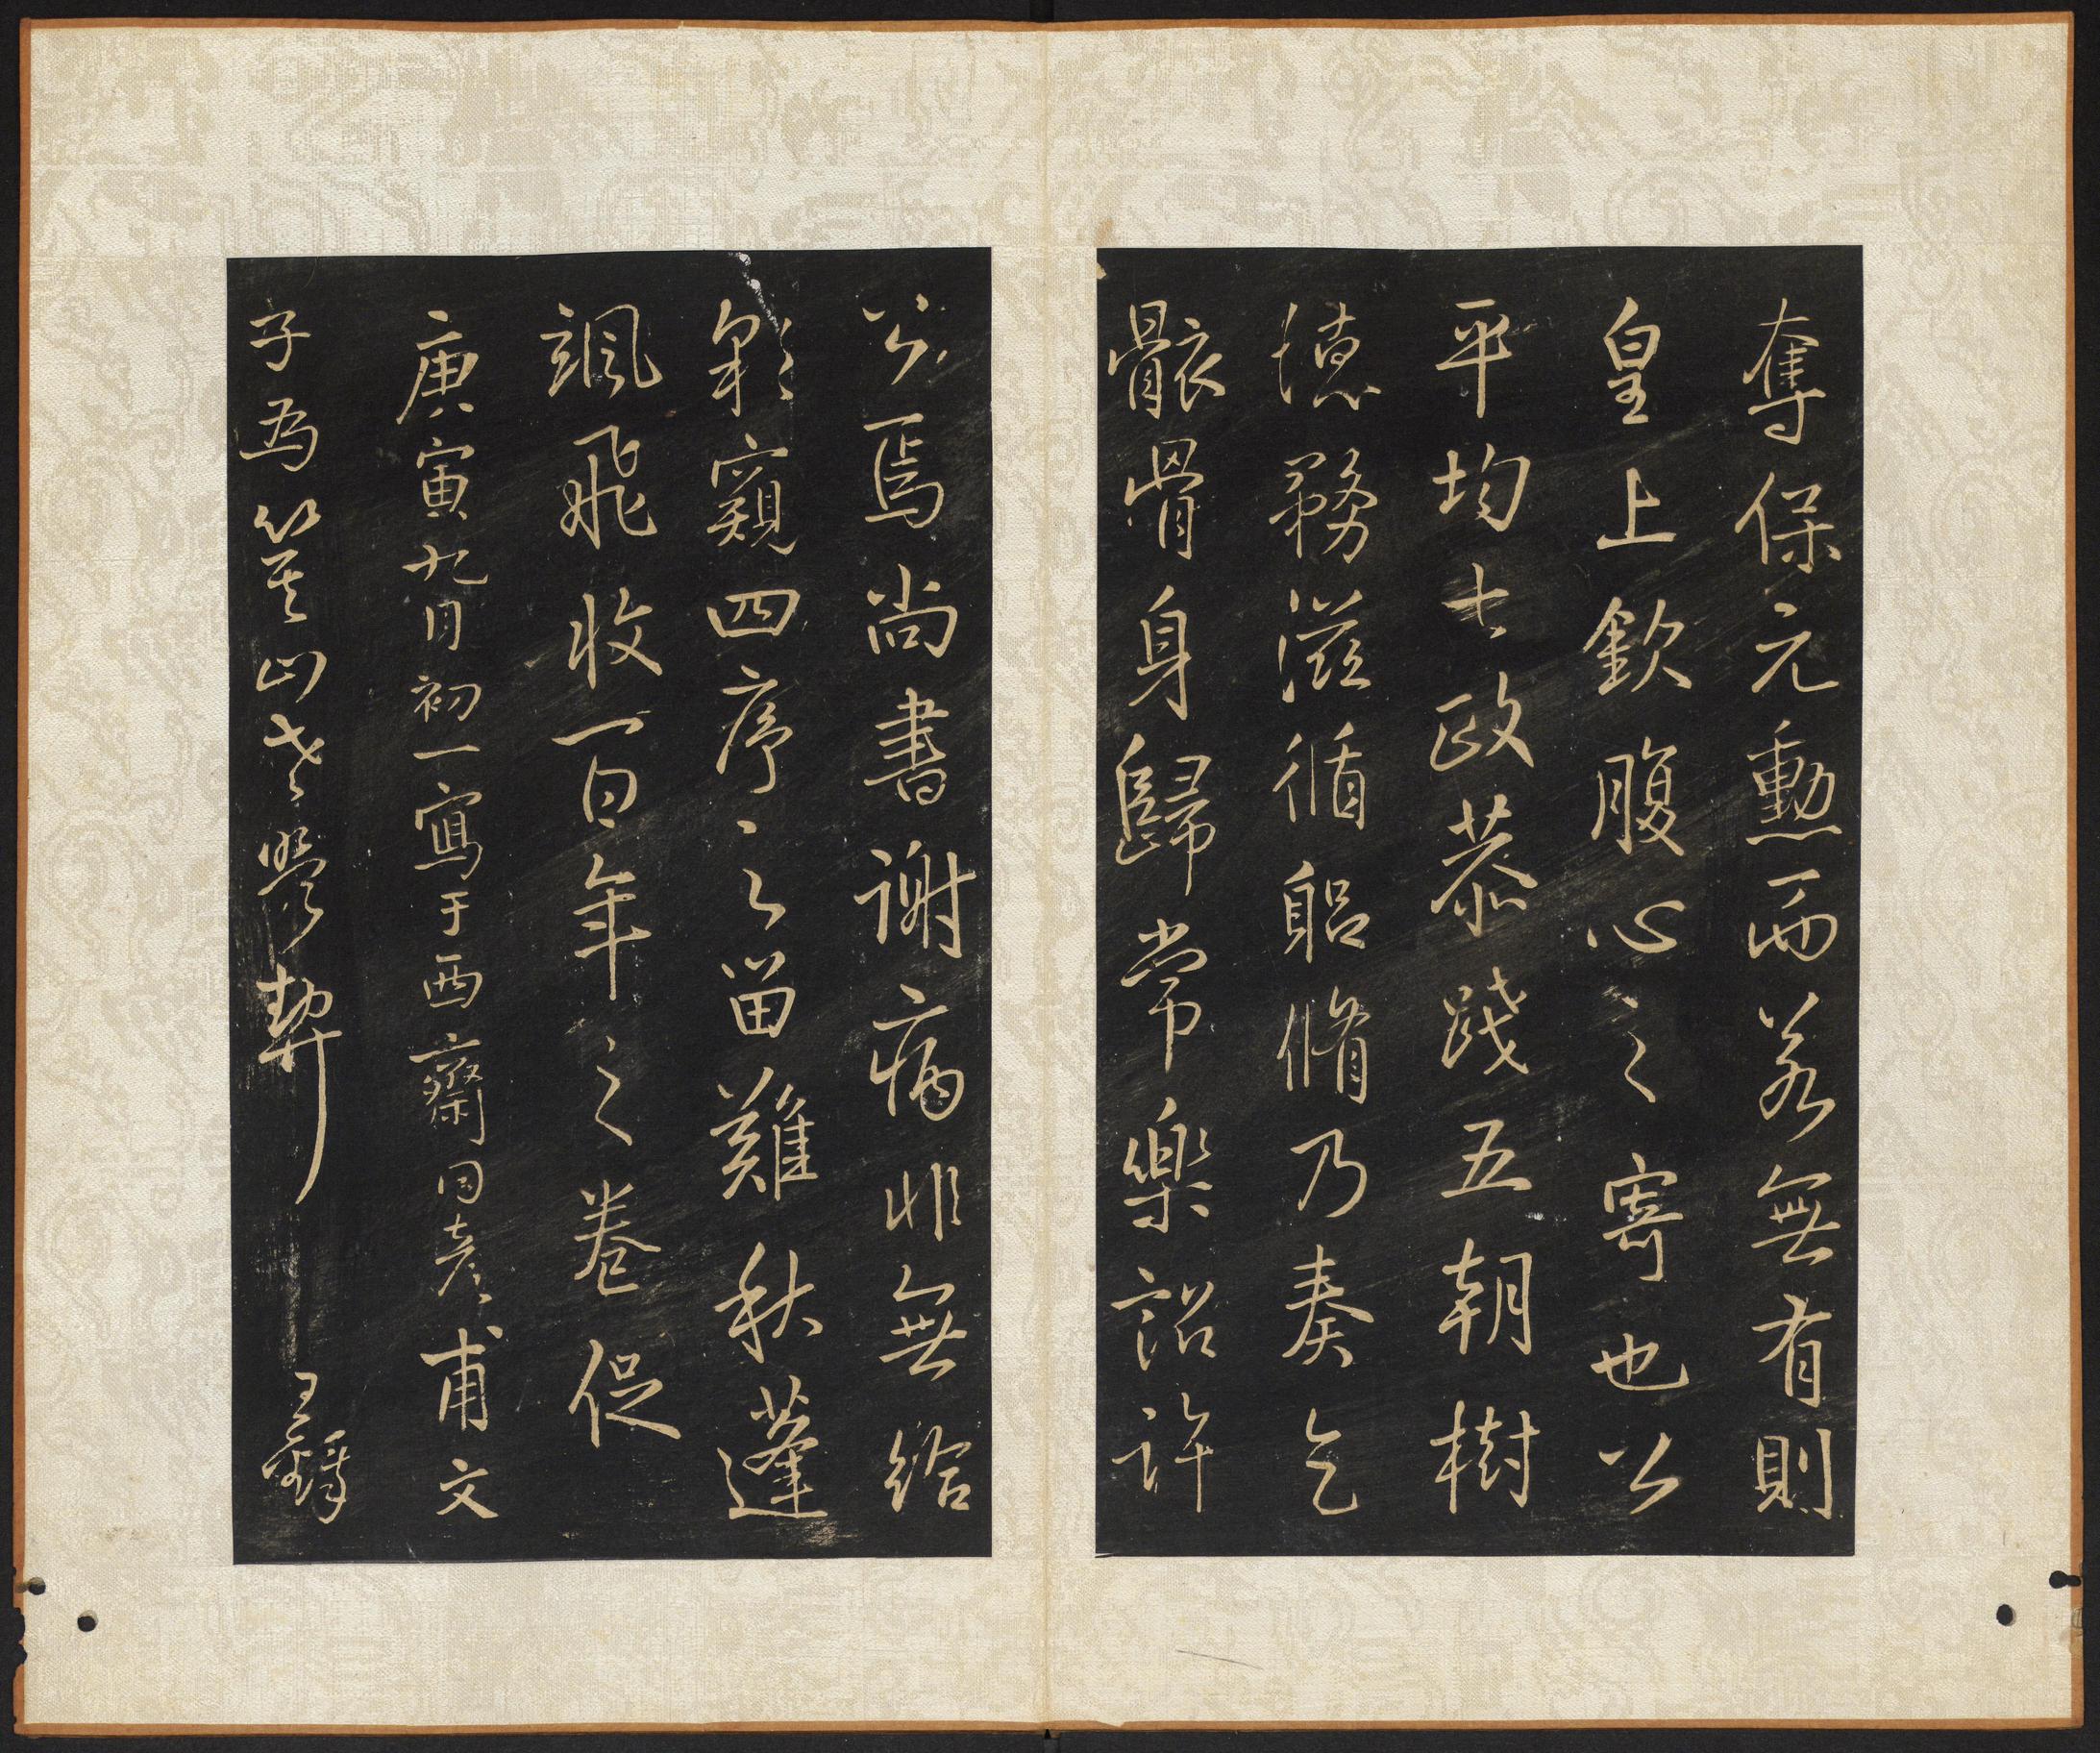 奪保元勳而若無有則
皇上欽腹心之寄也以
平均七政恭踐五朝樹
德務滋循躬脩乃奏乞
骸骨身歸常樂詔許
焉尚書謝病非無給
窺四序之留難秋蓬
颯飛收百年之卷促
庚寅九月初一寫于西齋同彥甫文
字為笠山老學契 王鐸